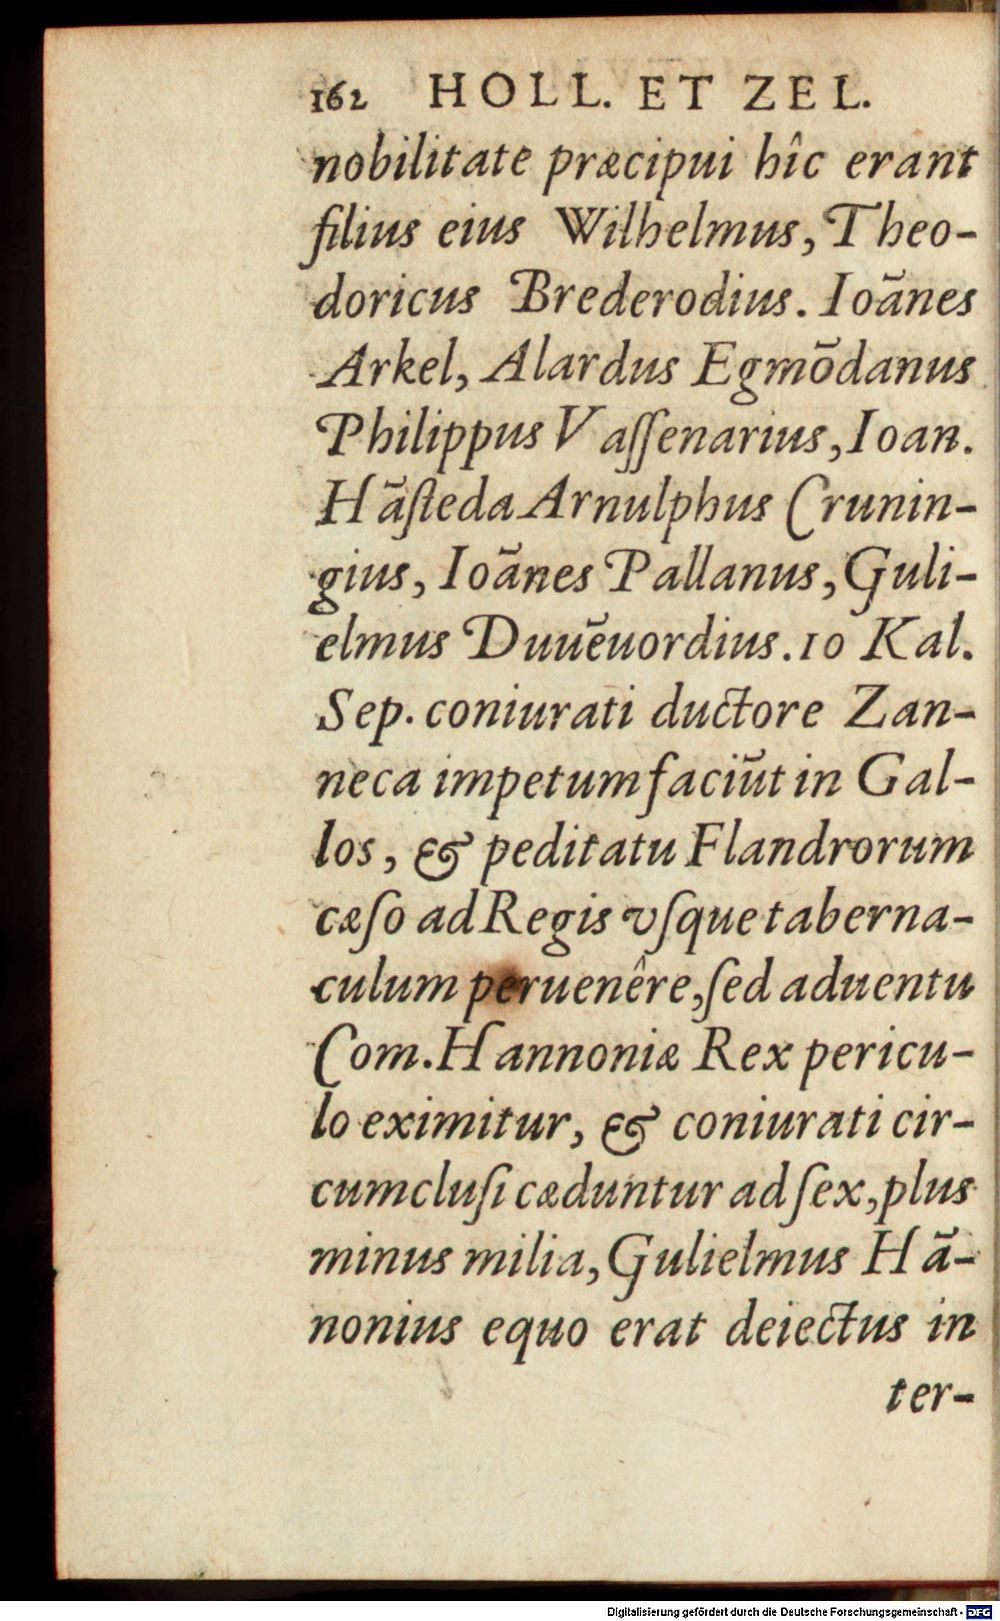 162 HOLL. ET ZEL.
nobilitate præcipui hîc erant
filius eius Wilhelmus, Theo-
doricus Brederodius. Ioānes
Arkel, Alardus Egmōdanus
Philippus Vaſſenarius, Ioan.
Hāſteda Arnulphus Crunin-
gius, Ioānes Pallanus, Guli-
elmus Duuēuordius. 10 Kal.
Sep. coniurati ductore Zan-
neca impetum faciūt in Gal-
los, & peditatu Flandrorum
cæſo ad Regis vſque taberna-
culum peruenêre, ſed aduentu
Com. Hannoniæ Rex pericu-
lo eximitur, & coniurati cir-
cumcluſi cæduntur ad ſex, plus
minus milia, Gulielmus Hā-
nonius equo erat deiectus in
ter-
Digitalisierung gefördert durch die Deutsche Forschungsgemeinschaft - DFG